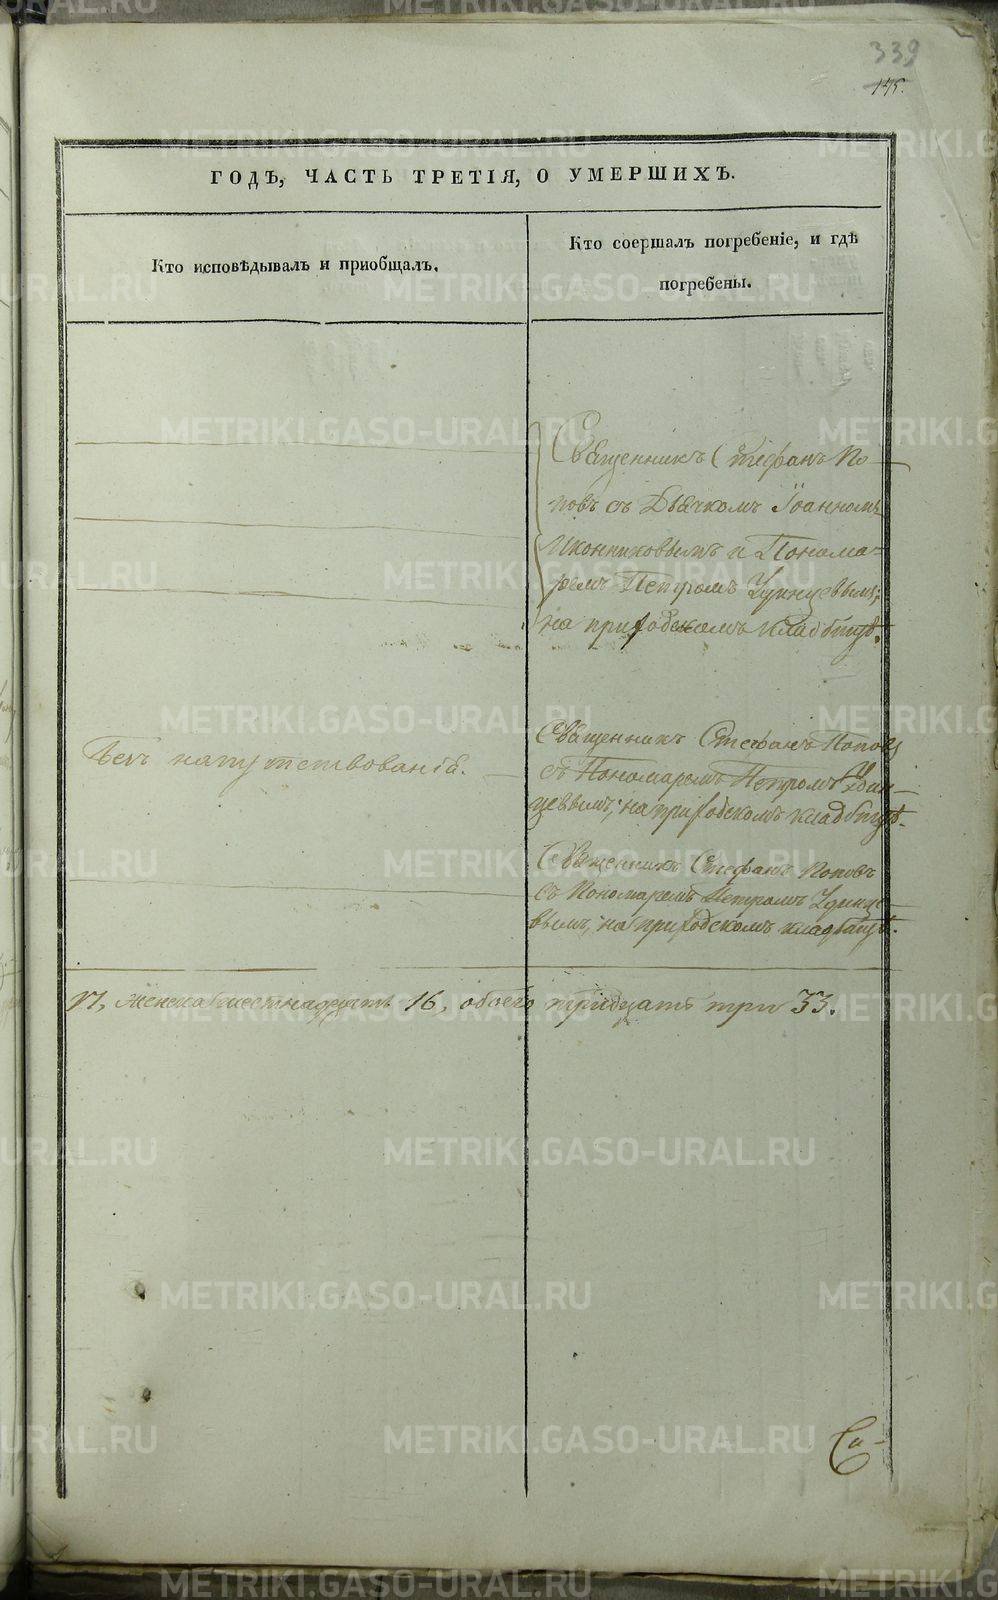 339
145.
ГОДѢ, ЧАСТЬ ТРЕТІЯ, О УМЕРШИХЪ.
Кто исповѣдывалъ и приобщалъ.
Кто соершалъ погребеніе, и гдѣ
погребены.
Священникъ Стефанъ По-
повъ съ Дьячкомъ Іоанномъ
Иконниковымъ и Понома-
ремъ Петромъ Удинцевымъ,
на приходскомъ кладбищѣ.
Безъ напутствованія.
Священникъ Стефанъ Поповъ
съ Пономаремъ Петромъ Удин-
цевымъ, на приходскомъ кладбищѣ.
Священникъ Стефанъ Поповъ
съ Пономаремъ Петромъ Удинце-
вымъ, на приходскомъ кладбищѣ.
17, женска шестнадцать 16, обоего тридцать три 33.
METRIKI.GASO-URAL.RU